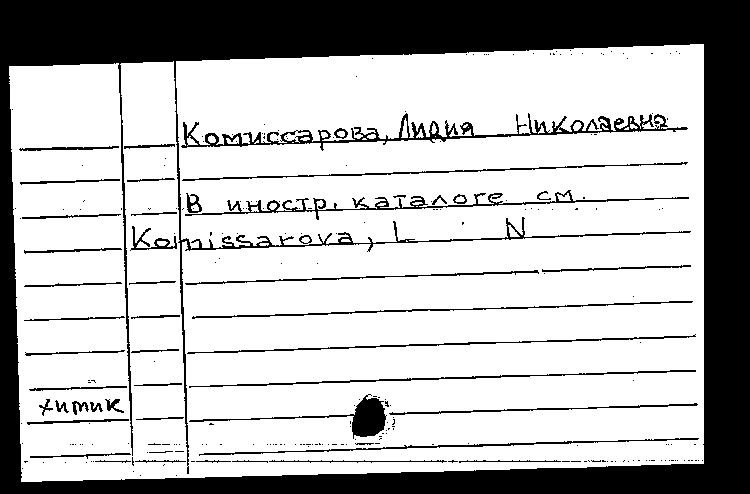 Комиссарова, Лидия Николаевна
В иностр. каталоге см.
Komissarova, L N
химик